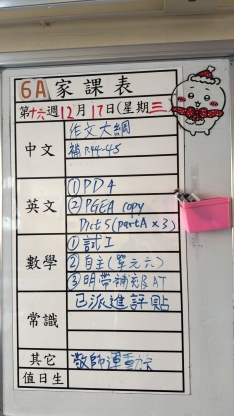 6A 家課表
第十六週12月17日(星期三
中文
作文大綱
補 P.44-45
英文
① PD4
② PGEA copy
Dict 5 (part A x 3)
數學
① 試工
② 自主(單元六)
③ 明帶補充 AT
常識
已派進評貼
其它
敬師運動
值日生